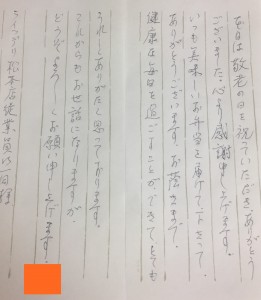 本日は敬老の日を祝っていただきありがとう
ございました。心より感謝申し上げます。
いつも美味しいお弁当を届けて下さって、
ありがとうございます。お蔭さまで
健康で毎日を過ごすことができてとても
うれしくありがたく思っております。
これからもお世話になりますが、
どうぞよろしくお願い申し上げます。
松本店従業員御一同様